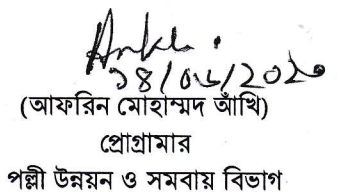 (আফরিন মোহাম্মদ আঁখি)
প্রোগ্রামার
পল্লী উন্নয়ন ও সমবায় বিভাগ